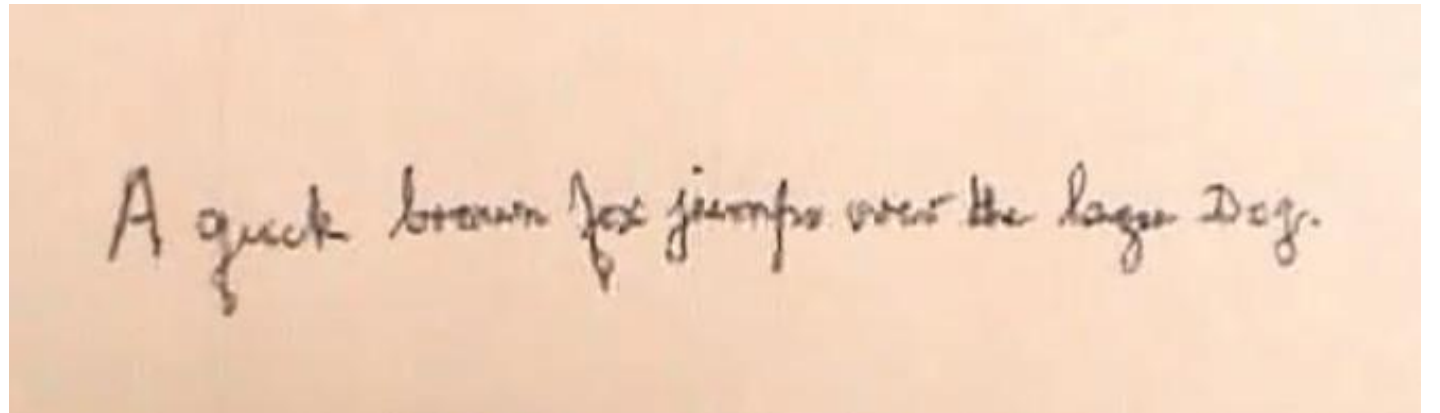 A quick brown fox jumps over the Dog.